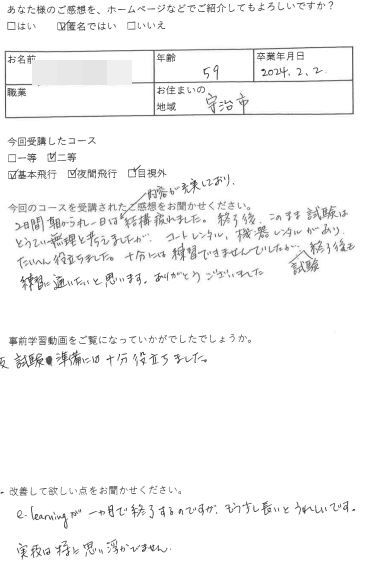 あなた様のご感想を、ホームページなどでご紹介してもよろしいですか？
□はい ☑匿名ではい □いいえ
お名前
年齢
59
卒業年月日
2024. 2. 2.
職業
お住まいの
地域
宇治市
今回受講したコース
□一等 ☑二等
☑基本飛行 ☑夜間飛行 ☑目視外
今回のコースを受講されたご感想をお聞かせください。
内容が充実しており、
2日間朝から 一日は結構疲れました。終了後、このまま試験は
とうてい無理と考えましたが、コートレンタル、機器レンタルがあり、
たいへん役立ちました。十分には練習できませんでしたが、試験終了後も
練習に通いたいと思います。ありがとうございました
事前学習動画をご覧になっていかがでしたでしょうか。
試験準備には十分役立ちました。
・改善して欲しい点をお聞かせください。
e-learningが一ヵ月で終了するのですが、もう少し長いとうれしいです。
実技は特に思い浮かびません。